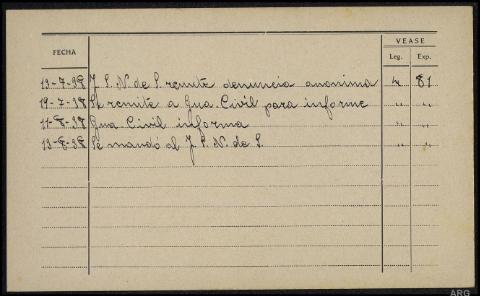 VEASE
FECHA Leg. Exp.
13-7-38 J. S. N. de S. remite denuncia anonima 4 81
19-7-38 Se remite a Gua. Civil para informe " "
11-8-38 Gua. Civil informa " "
13-8-38 Se mando al J. S. N. de S. " "
ARG